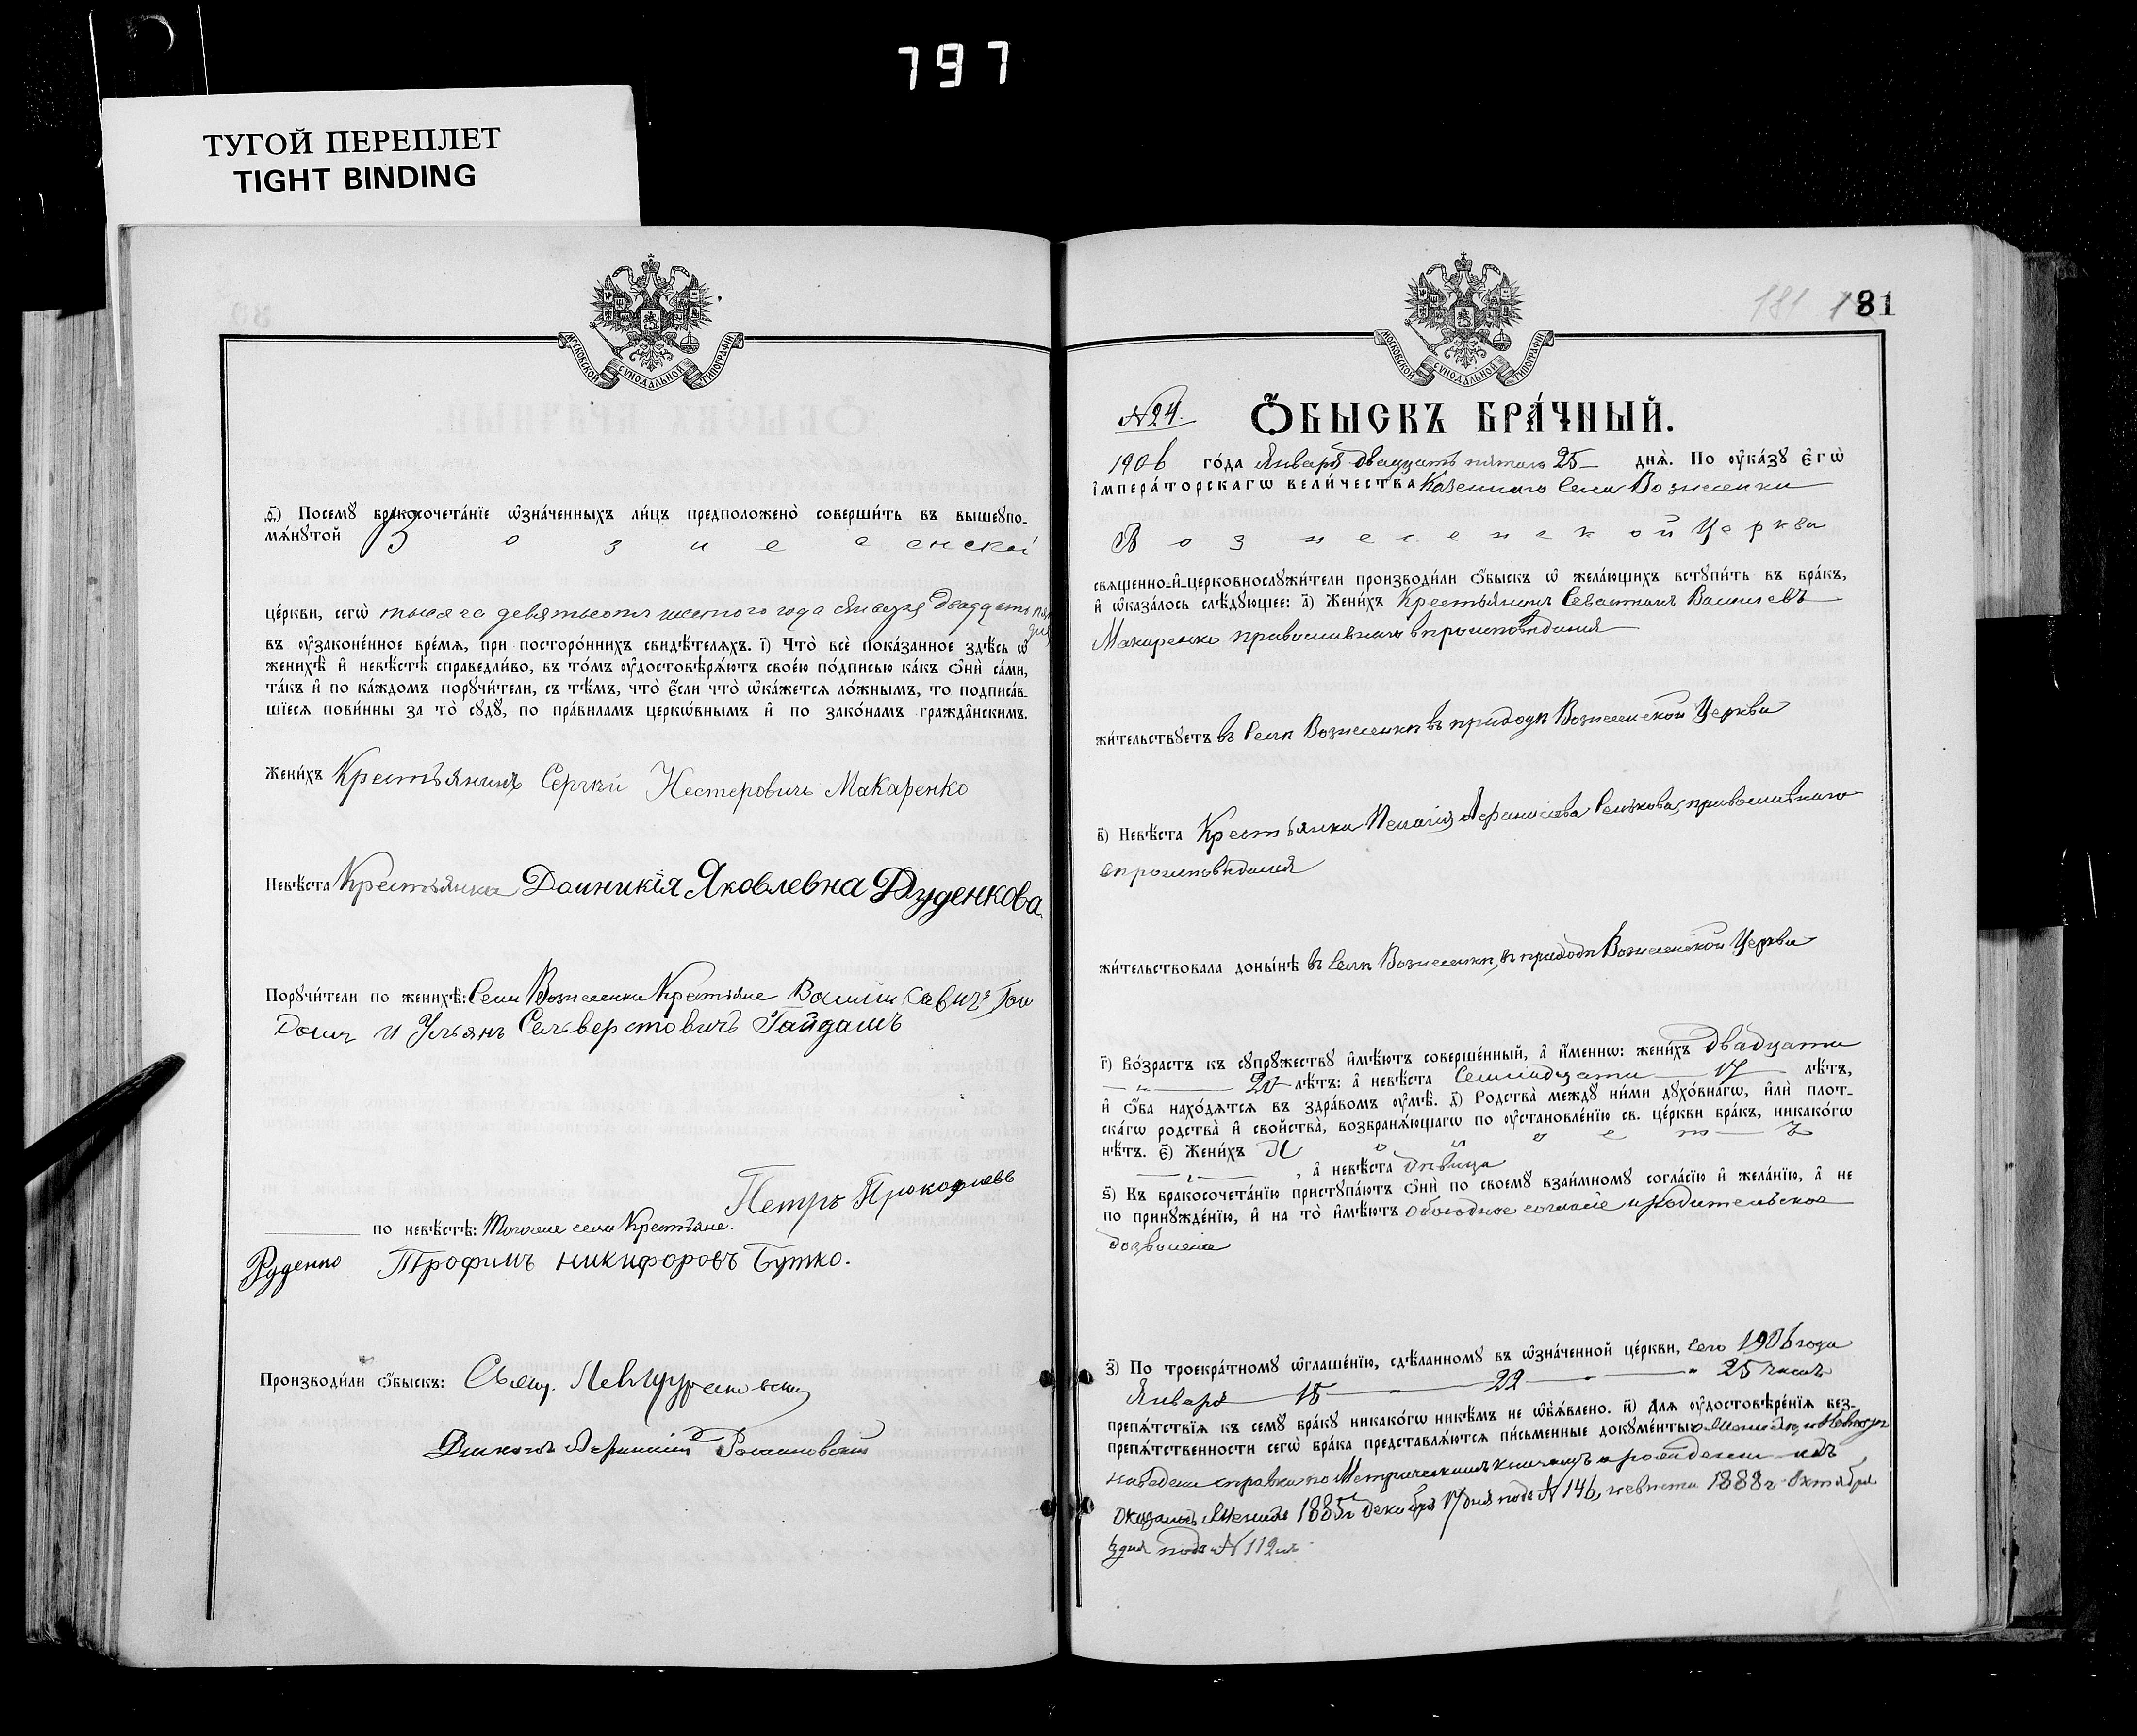 797
ТУГОЙ ПЕРЕПЛЕТ
TIGHT BINDING
МОСКОВСКОЙ СѴНОДАЛЬНОЙ ТИПОГРАФІИ
ѳ҃) Посемꙋ бракосочета́нїе ѡ҆зна́ченныхъ ли́цъ предположено̀ соверши́ть въ вышеꙋпо-
мѧ́нꙋтой Вознесенской
це́ркви, сегѡ̀ тысяча девятьсотъ шестого года Января двадцать
въ ᲂу҆зако́ненное вре́мѧ, при посторо́ннихъ свидѣ́телѧхъ. і҃) Что̀ всѐ пока́занное здѣ́сь ѡ҆
женихѣ̀ и҆ невѣ́стѣ справедли́во, въ то́мъ ᲂу҆достовѣрѧ́ютъ свое́ю по́дписью ка́къ ѻ҆нѝ са́ми,
та́къ и҆ по ка́ждомъ порꙋчи́тели, съ тѣ́мъ, что̀ є҆́сли что̀ ѡ҆ка́жетсѧ ло́жнымъ, то подписа́в-
шїесѧ пови́нны за то̀ сꙋдꙋ̀, по пра́виламъ церкѡ́внымъ и҆ по зако́намъ гражда̑нскимъ.
Жени́хъ Крестьянинъ Сергѣй Нестеровичъ Макаренко
Невѣ́ста Крестьянка Домникія Яковлевна Руденкова.
Порꙋчи́тели по женихѣ̀: Села Вознесенки Крестьяне Василій Савичъ Гай
дашъ и Ульянъ Сельверстовичъ Гайдашъ
Петръ Прокофіевъ
по невѣ́стѣ: Тогоже села Крестьяне.
Руденко Трофимъ Никифоровъ Бутко.
Производи́ли ѻ҆́быскъ: Свящ. Лев
Діаконъ
181 181
МОСКОВСКОЙ СѴНОДАЛЬНОЙ ТИПОГРАФІИ
№ 24.
Ѻ҆́БЫСКЪ БРА́ЧНЫЙ.
1906 го́да Января двадцать пятаго 25 днѧ̀. По ᲂу҆ка́зꙋ є҆гѡ̀
і҆мпера́торскагѡ вели́чества Казеннаго Села Вознесенки
Вознесенской Церкви
свѧщенно-и҆-церковнослꙋжи́тели производи́ли ѻ҆́быскъ ѡ҆ жела́ющихъ встꙋпи́ть въ бра́къ,
и҆ ѡ҆каза́лось слѣ́дꙋющее: а҃) Жени́хъ Крестьянинъ Севастіанъ Васильевъ
Макаренко православнаго вѣроисповѣданія
жи́тельствꙋетъ въ Селѣ Вознесенкѣ въ приходѣ Вознесенской Церкви
в҃) Невѣ́ста Крестьянка Пелагія Афанасіева Сенькова, православнаго
вѣроисповѣданія
жи́тельствовала доны́нѣ въ Селѣ Вознесенкѣ, въ приходѣ Вознесенской Церкви
г҃) Во́зрастъ къ сꙋпрꙋ́жествꙋ и҆мѣ́ютъ соверше́нный, а҆ и҆́меннѡ: жени́хъ двадцати
20 лѣ́тъ: а҆ невѣ́ста Семнадцати 17 лѣ́тъ,
и҆ ѻ҆́ба нахо́дѧтсѧ въ здра́вомъ ᲂу҆мѣ̀. д҃) Родства̀ междꙋ̀ ни́ми дꙋхо́внагѡ, и҆лѝ плот-
ска́гѡ родства̀ и҆ свойства̀, возбранѧ́ющагѡ по ᲂу҆становле́нїю св. це́ркви бра́къ, никако́гѡ
нѣ́тъ. є҃) Жени́хъ Холостъ
, а҆ невѣ́ста дѣвица
ѕ҃) Къ бракосочета́нїю пристꙋпа́ютъ ѻ҆нѝ по своемꙋ̀ взаи́мномꙋ согла́сїю и҆ жела́нїю, а҆ не
по принꙋжде́нїю, и҆ на то̀ и҆мѣ́ютъ обоюдное согласіе и родительское
дозволеніе
з҃) По троекра́тномꙋ ѡ҆глаше́нїю, сдѣ́ланномꙋ въ ѡ҆зна́ченной це́ркви, сего 1906 года
Января 15 22 25 чиселъ
препѧ́тствїѧ къ семꙋ̀ бра́кꙋ никако́гѡ никѣ́мъ не ѡ҆б̾ѧ́влено. и҃) Длѧ ᲂу҆достовѣре́нїѧ без-
препѧ́тственности сегѡ̀ бра́ка представлѧ́ютсѧ пи́сьменные докꙋме́нты: о Женихѣ и Невѣстѣ
наведены справки по Метрическимъ книгамъ и рожденіе ихъ
оказалось Жениха 1885 г. Декабря 17 дня подъ № 146, невѣсты 1888 г. Октября
дня подъ № 112